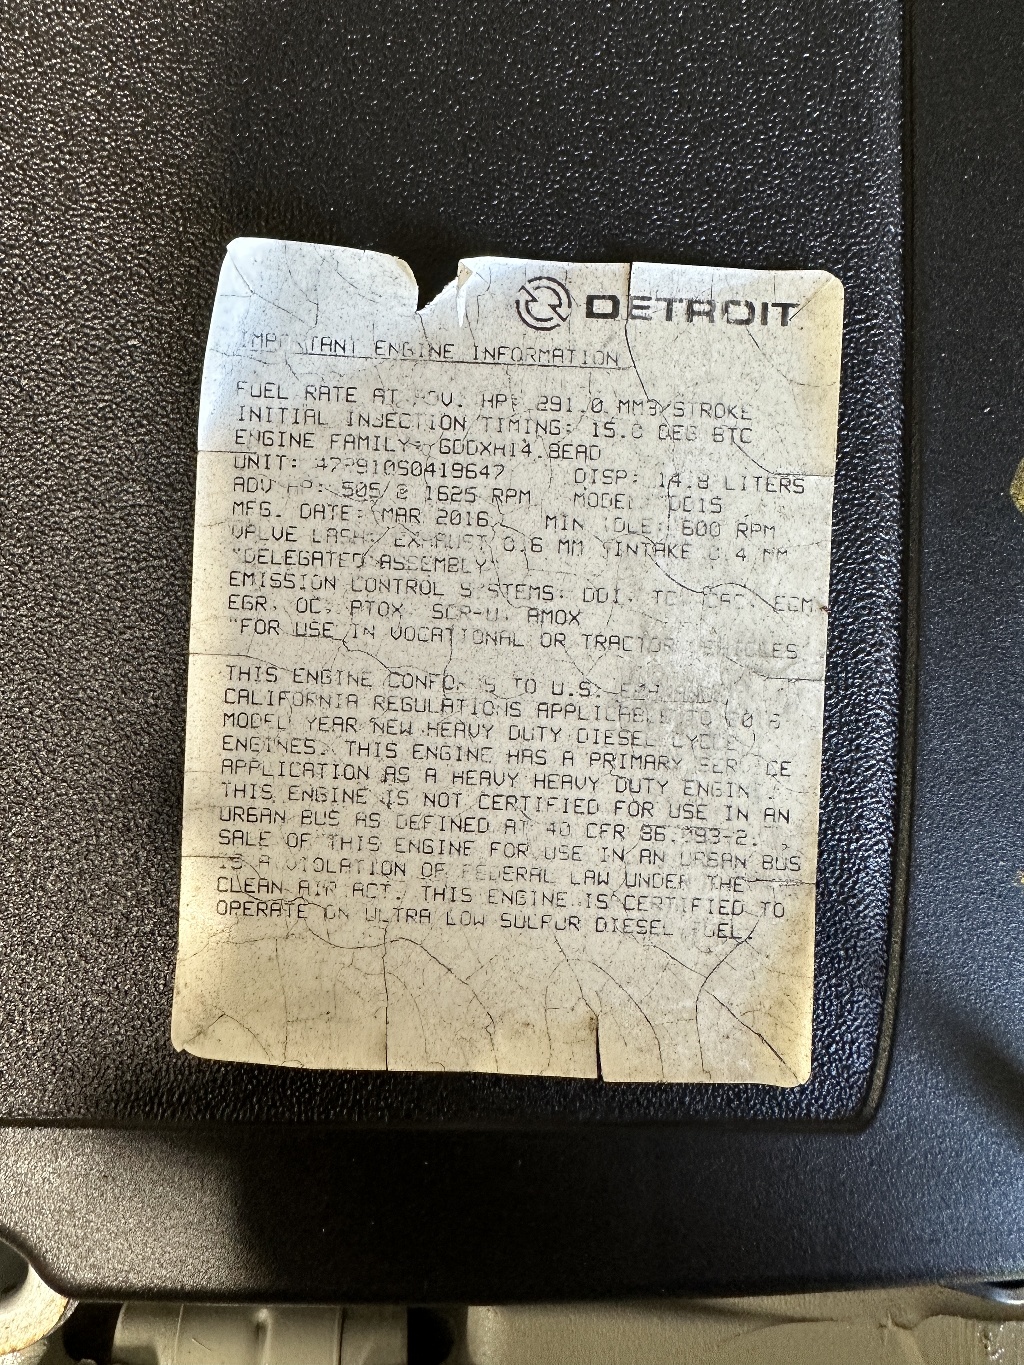 DETROIT
IMPORTANT ENGINE INFORMATION
FUEL RATE AT ADV. HP: 291.0 MM3/STROKE
INITIAL INJECTION TIMING: 15.0 DEG BTC
ENGINE FAMILY: GDDXH14.8EAD
UNIT: 472910S0419647 DISP: 14.8 LITERS
ADV HP: 505 @ 1625 RPM MODEL: DD15
MFG. DATE: MAR 2016 MIN IDLE: 600 RPM
VALVE LASH: EXHAUST 0.6 MM INTAKE 0.4 MM
"DELEGATED ASSEMBLY"
EMISSION CONTROL SYSTEMS: DDI, TC, CAC, ECM
EGR, OC, PTOX, SCR-U, AMOX
"FOR USE IN VOCATIONAL OR TRACTOR VEHICLES
THIS ENGINE CONFORMS TO U.S. EPA AND
CALIFORNIA REGULATIONS APPLICABLE TO 2016
MODEL YEAR NEW HEAVY DUTY DIESEL CYCLE
ENGINES. THIS ENGINE HAS A PRIMARY SERVICE
APPLICATION AS A HEAVY HEAVY DUTY ENGINE
THIS ENGINE IS NOT CERTIFIED FOR USE IN AN
URBAN BUS AS DEFINED AT 40 CFR 86.093-2.
SALE OF THIS ENGINE FOR USE IN AN URBAN BUS
IS A VIOLATION OF FEDERAL LAW UNDER THE
CLEAN AIR ACT. THIS ENGINE IS CERTIFIED TO
OPERATE ON ULTRA LOW SULFUR DIESEL FUEL.